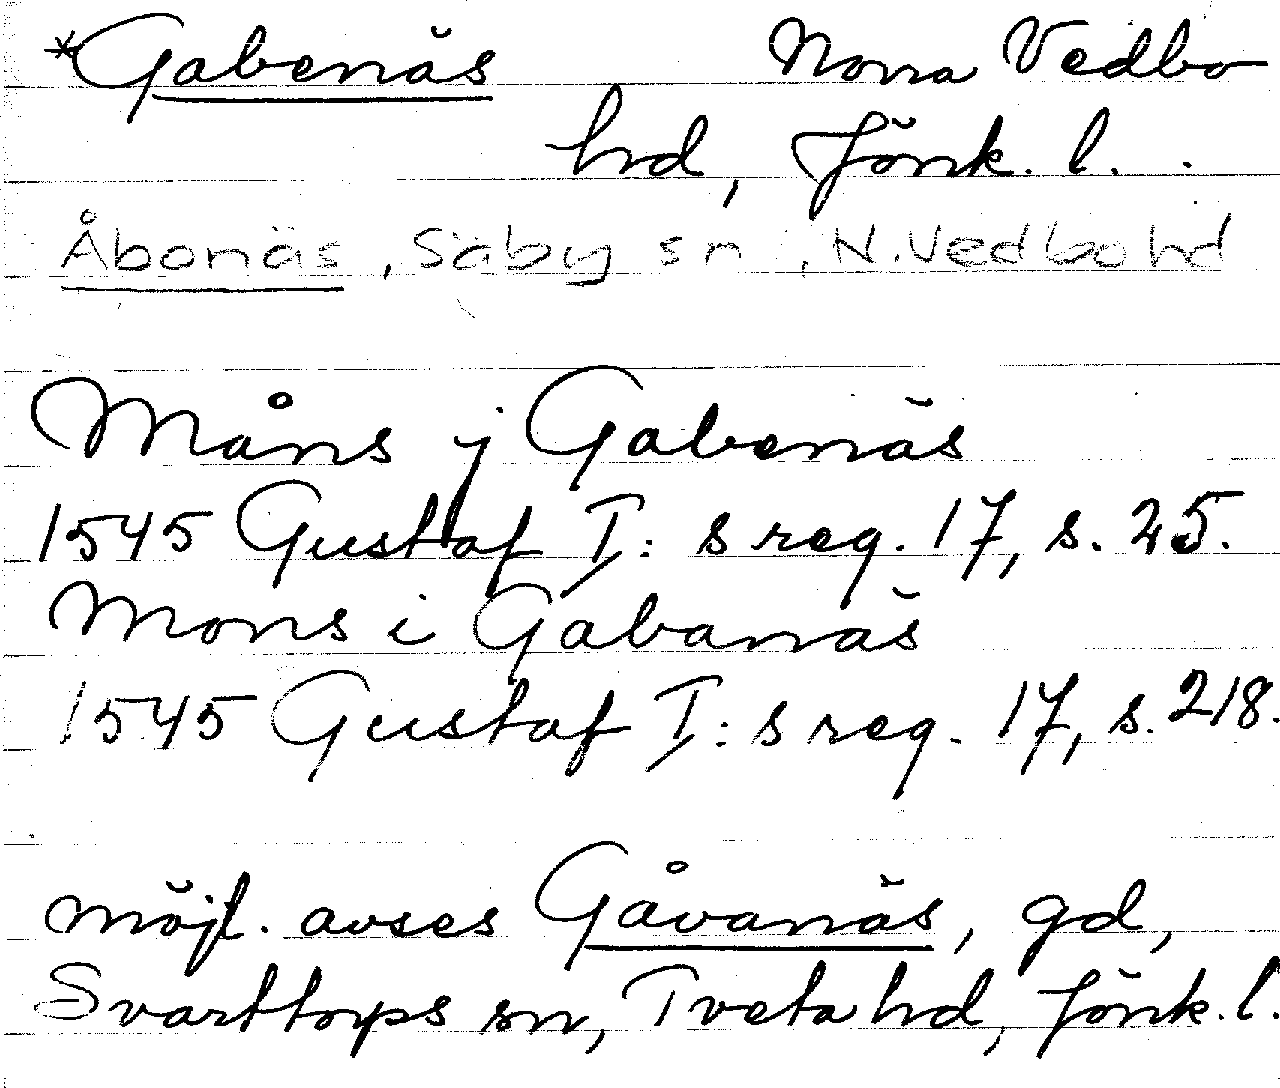 *Gabenäs Norra Vedbo
hd, Jönk. l.
Åbonäs, Säby sn, N. Vedbo hd
Måns j Gabenäs
1545 Gustaf I: s reg. 17, s. 25.
Mons i Gabanäs
1545 Gustaf I: s reg. 17, s. 218.
möjl. avses Gåvanäs, gd,
Svarttorps sn, Tveta hd, Jönk. l.